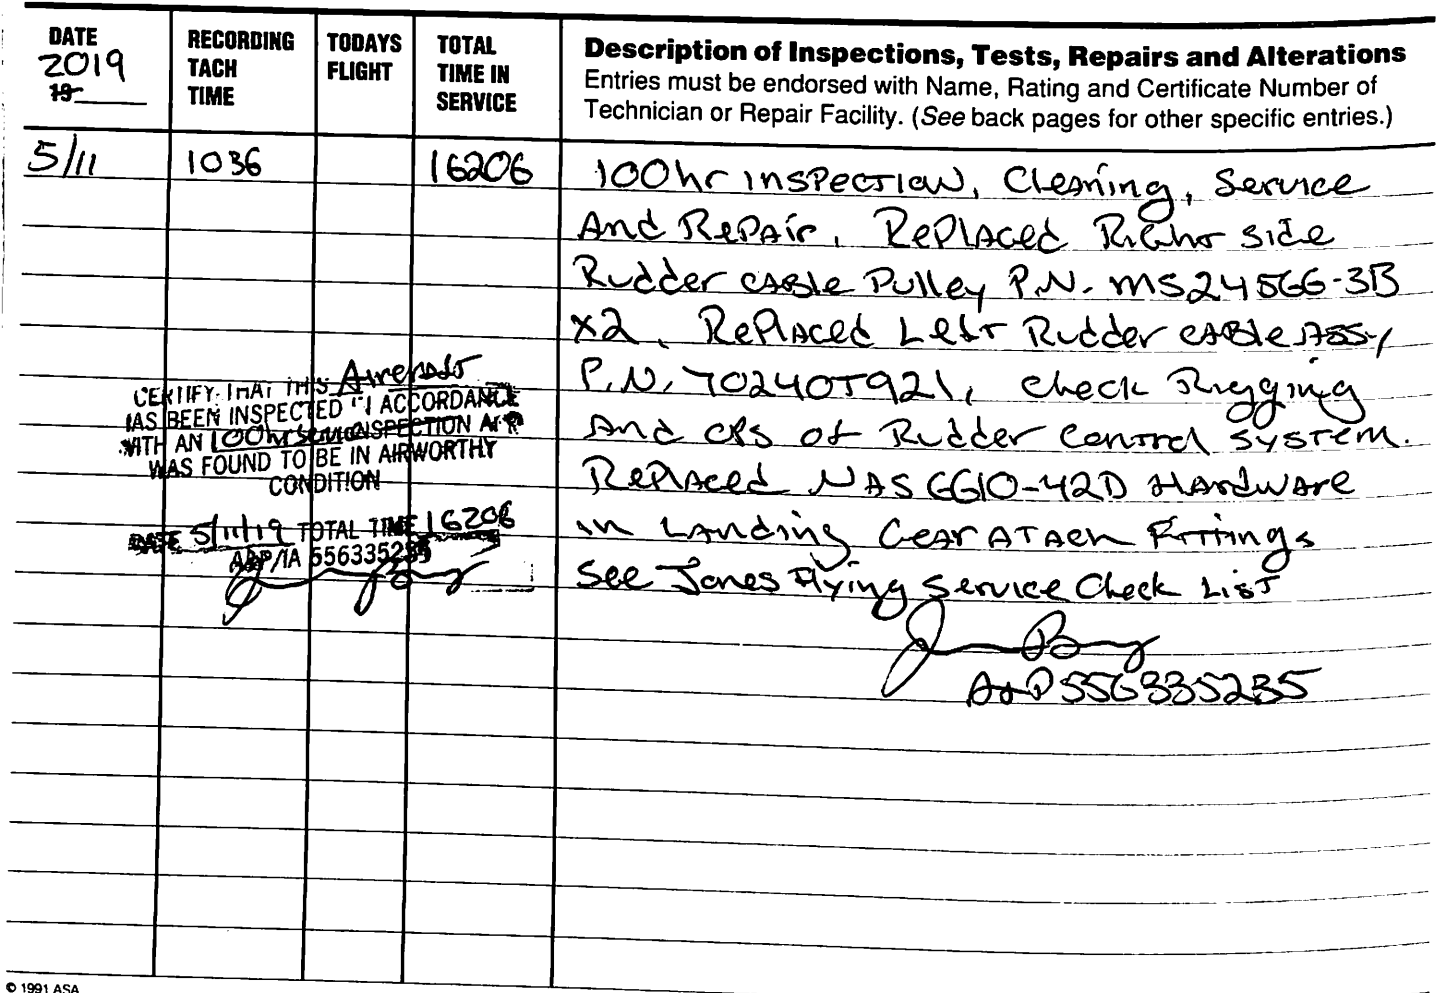 DATE
2019
19
RECORDING
TACH
TIME
TODAYS
FLIGHT
TOTAL
TIME IN
SERVICE
Description of Inspections, Tests, Repairs and Alterations
Entries must be endorsed with Name, Rating and Certificate Number of
Technician or Repair Facility. (See back pages for other specific entries.)
5/11 1036 16206
100hr inspection, Cleaning, Service
And Repair. Replaced Right side
Rudder cable Pulley P.N. MS24566-3B
x2, Replaced Left Rudder cable Assy
P.N. 70240T921, check Rigging
And ops of Rudder Control System.
Replaced NAS6610-42D Hardware
in Landing Gear Atach Fittings
See Jones Flying Service Check List
A&P 556335235
CERTIFY THAT THIS
HAS BEEN INSPECTED IN ACCORDANCE
WITH AN 100hr INSPECTION
WAS FOUND TO BE IN AIRWORTHY
CONDITION
DATE 5/11/19 TOTAL TIME 16206
A&P/IA 556335235
© 1991 ASA